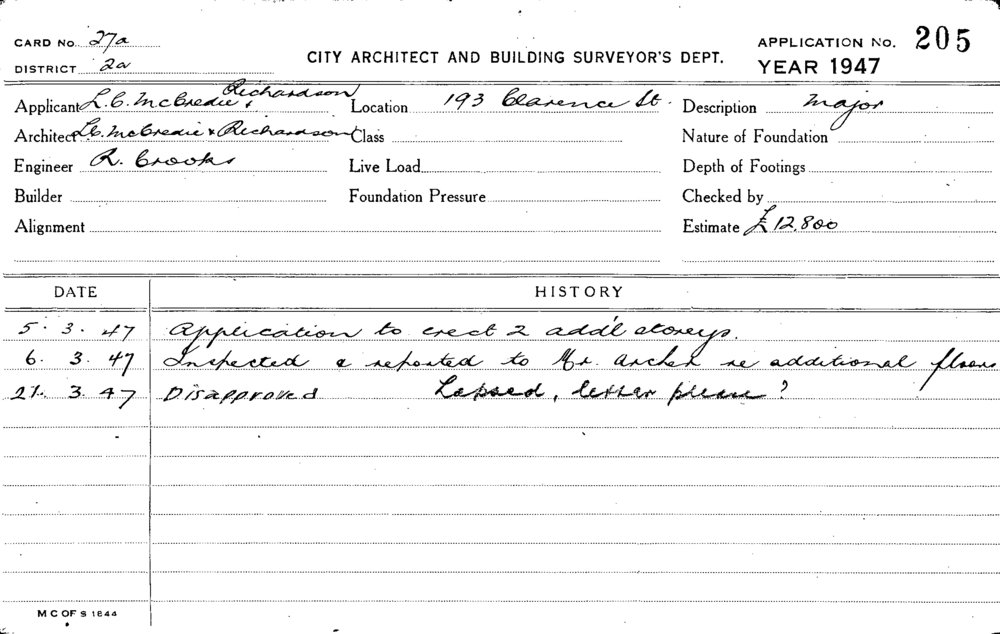 CARD No. 27a
DISTRICT 2a
CITY ARCHITECT AND BUILDING SURVEYOR'S DEPT.
APPLICATION No. 205
YEAR 1947
Applicant L. C. McCredie & Richardson Location 193 Clarence St. Description Major
Architect L.C. McCredie & Richardson Class Nature of Foundation
Engineer R. Crooks Live Load Depth of Footings
Builder Foundation Pressure Checked by
Alignment Estimate £12,800
DATE HISTORY
5. 3. 47 Application to erect 2 add'l storeys.
6. 3. 47 Inspected & reported to Mr. re additional floors
21. 3. 47 Disapproved Lapsed, letter please?
M C OF S 1844